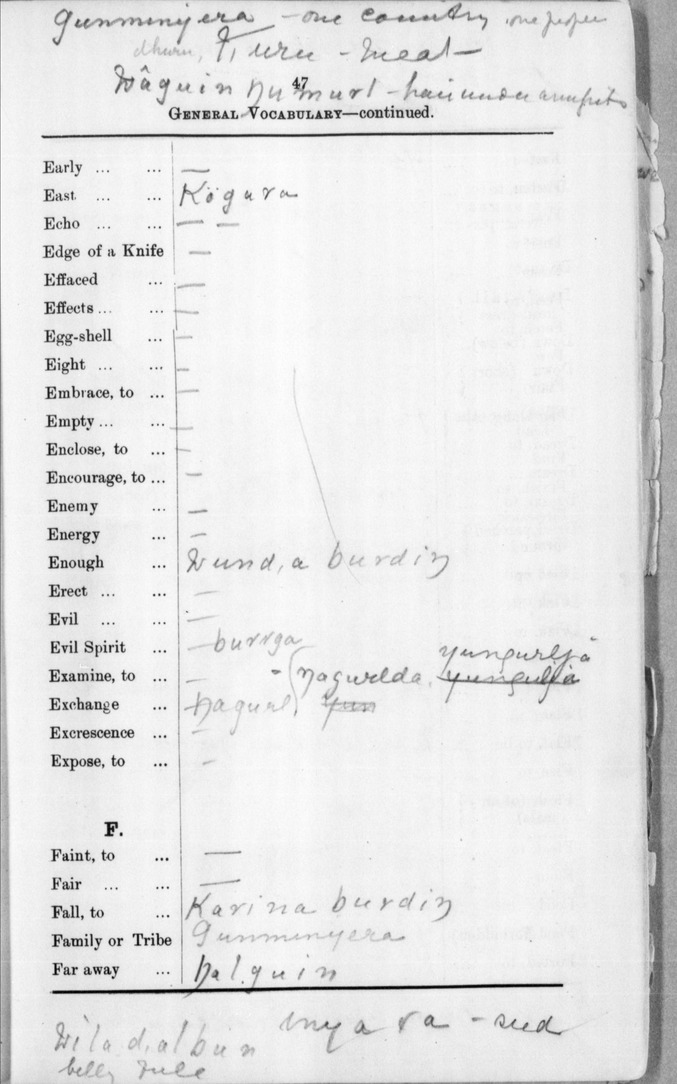 Gunminyera - one country, one people
dhuru, Turu - meat
Wâguin ngumurl - hair under armpits
47
GENERAL VOCABULARY—continued.
Early ... ... —
East ... ... Kögura
Echo ... ... — —
Edge of a Knife —
Effaced ... —
Effects ... ... —
Egg-shell ... —
Eight ... ... —
Embrace, to ... —
Empty ... ... —
Enclose, to ... —
Encourage, to ... —
Enemy ... —
Energy ... —
Enough ... Wund,a burdiŋ
Erect ... ... —
Evil ... ... —
Evil Spirit ... — burrga
yungurljă
Examine, to ... — - (ŋagurlda, yunguljă
Exchange ... ŋagual, yun
Excrescence ... —
Expose, to ... —
F.
Faint, to ... —
Fair ... ... —
Fall, to ... Karina burdiŋ
Family or Tribe Gunminyera
Far away ... ŋalguin
- seed
Wilad,albun
belly